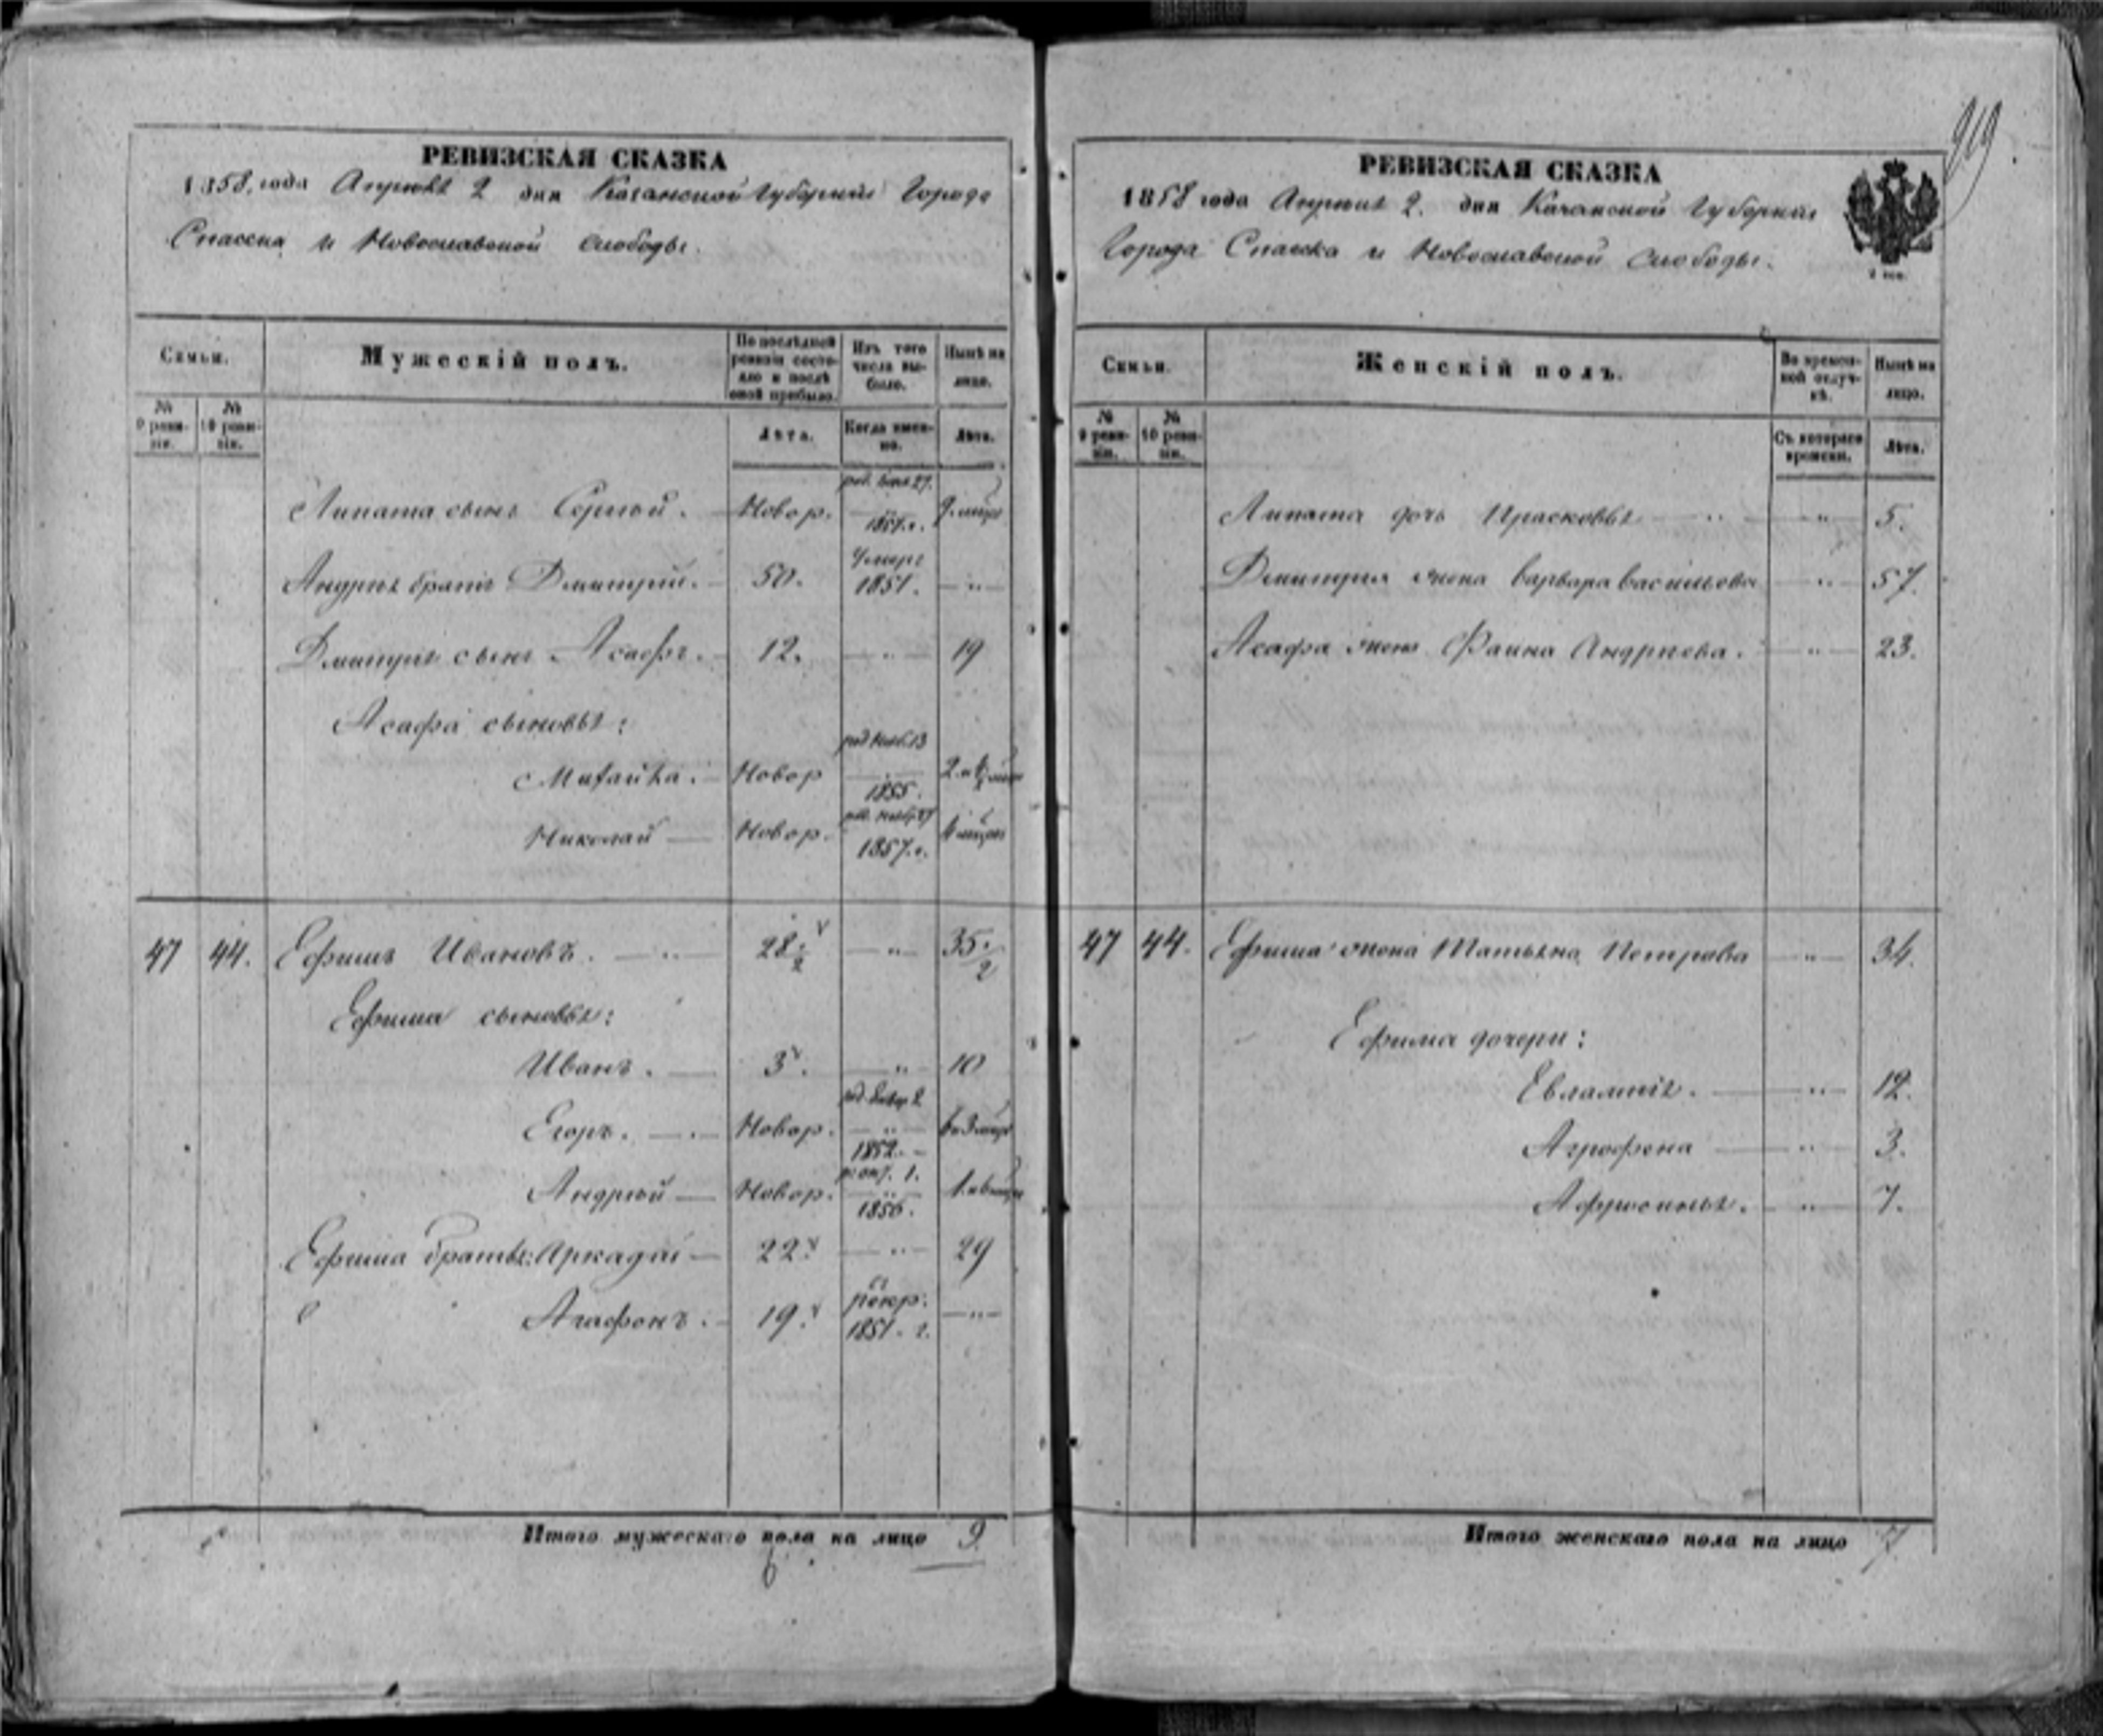 919
РЕВИЗСКАЯ СКАЗКА
1858 года Апреля 2 дня Казанской Губернии Города
Спасска и Новославской слободы.
Семьи.
Мужескій полъ.
По послѣдней ревизіи состояло и послѣ оной прибыло.
Изъ того числа выбыло.
Нынѣ на лицо.
№ 9 ревизіи.
№ 10 ревизіи.
Лѣта.
Когда именно.
Лѣта.
Липата сынъ Сергей. Новор. род. 27. 1857 г.
Андрея братъ Дмитрий. 50. умеръ 1851. "
Дмитрія сынъ Асафъ. 12. " 19
Асафа сыновья:
Михайла. Новор 1855.
Николай Новор. 1857 г.
47 44. Ефимъ Ивановъ. 28. 2 " 35. 2
Ефима сыновья:
Иванъ. 3. " 10
Егоръ. Новор. род. Январ 2 1852.
Андрей Новор. 1. 1856.
Ефима братья: Аркадій 22. " 29
Агафонъ. 19. рекр. 1851. г. "
Итого мужескаго пола на лицо 9.
РЕВИЗСКАЯ СКАЗКА
1858 года Апреля 2. дня Казанской Губерніи
Города Спасска и Новославской слободы.
Семьи.
Женскій полъ.
Во временной отлучкѣ.
Нынѣ на лицо.
№ 9 ревизіи.
№ 10 ревизіи.
Съ котораго времени.
Лѣта.
Липата дочь Прасковья " 5.
Дмитрия жена Варвара Васильева " 57.
Асафа жена Фаина Андреева. " 23.
47 44. Ефима жена Татьяна Петрова " 34.
Ефима дочери:
Евлампія. " 12.
Агрофена " 3.
Афросинья. " 7.
Итого женскаго пола на лицо 7.